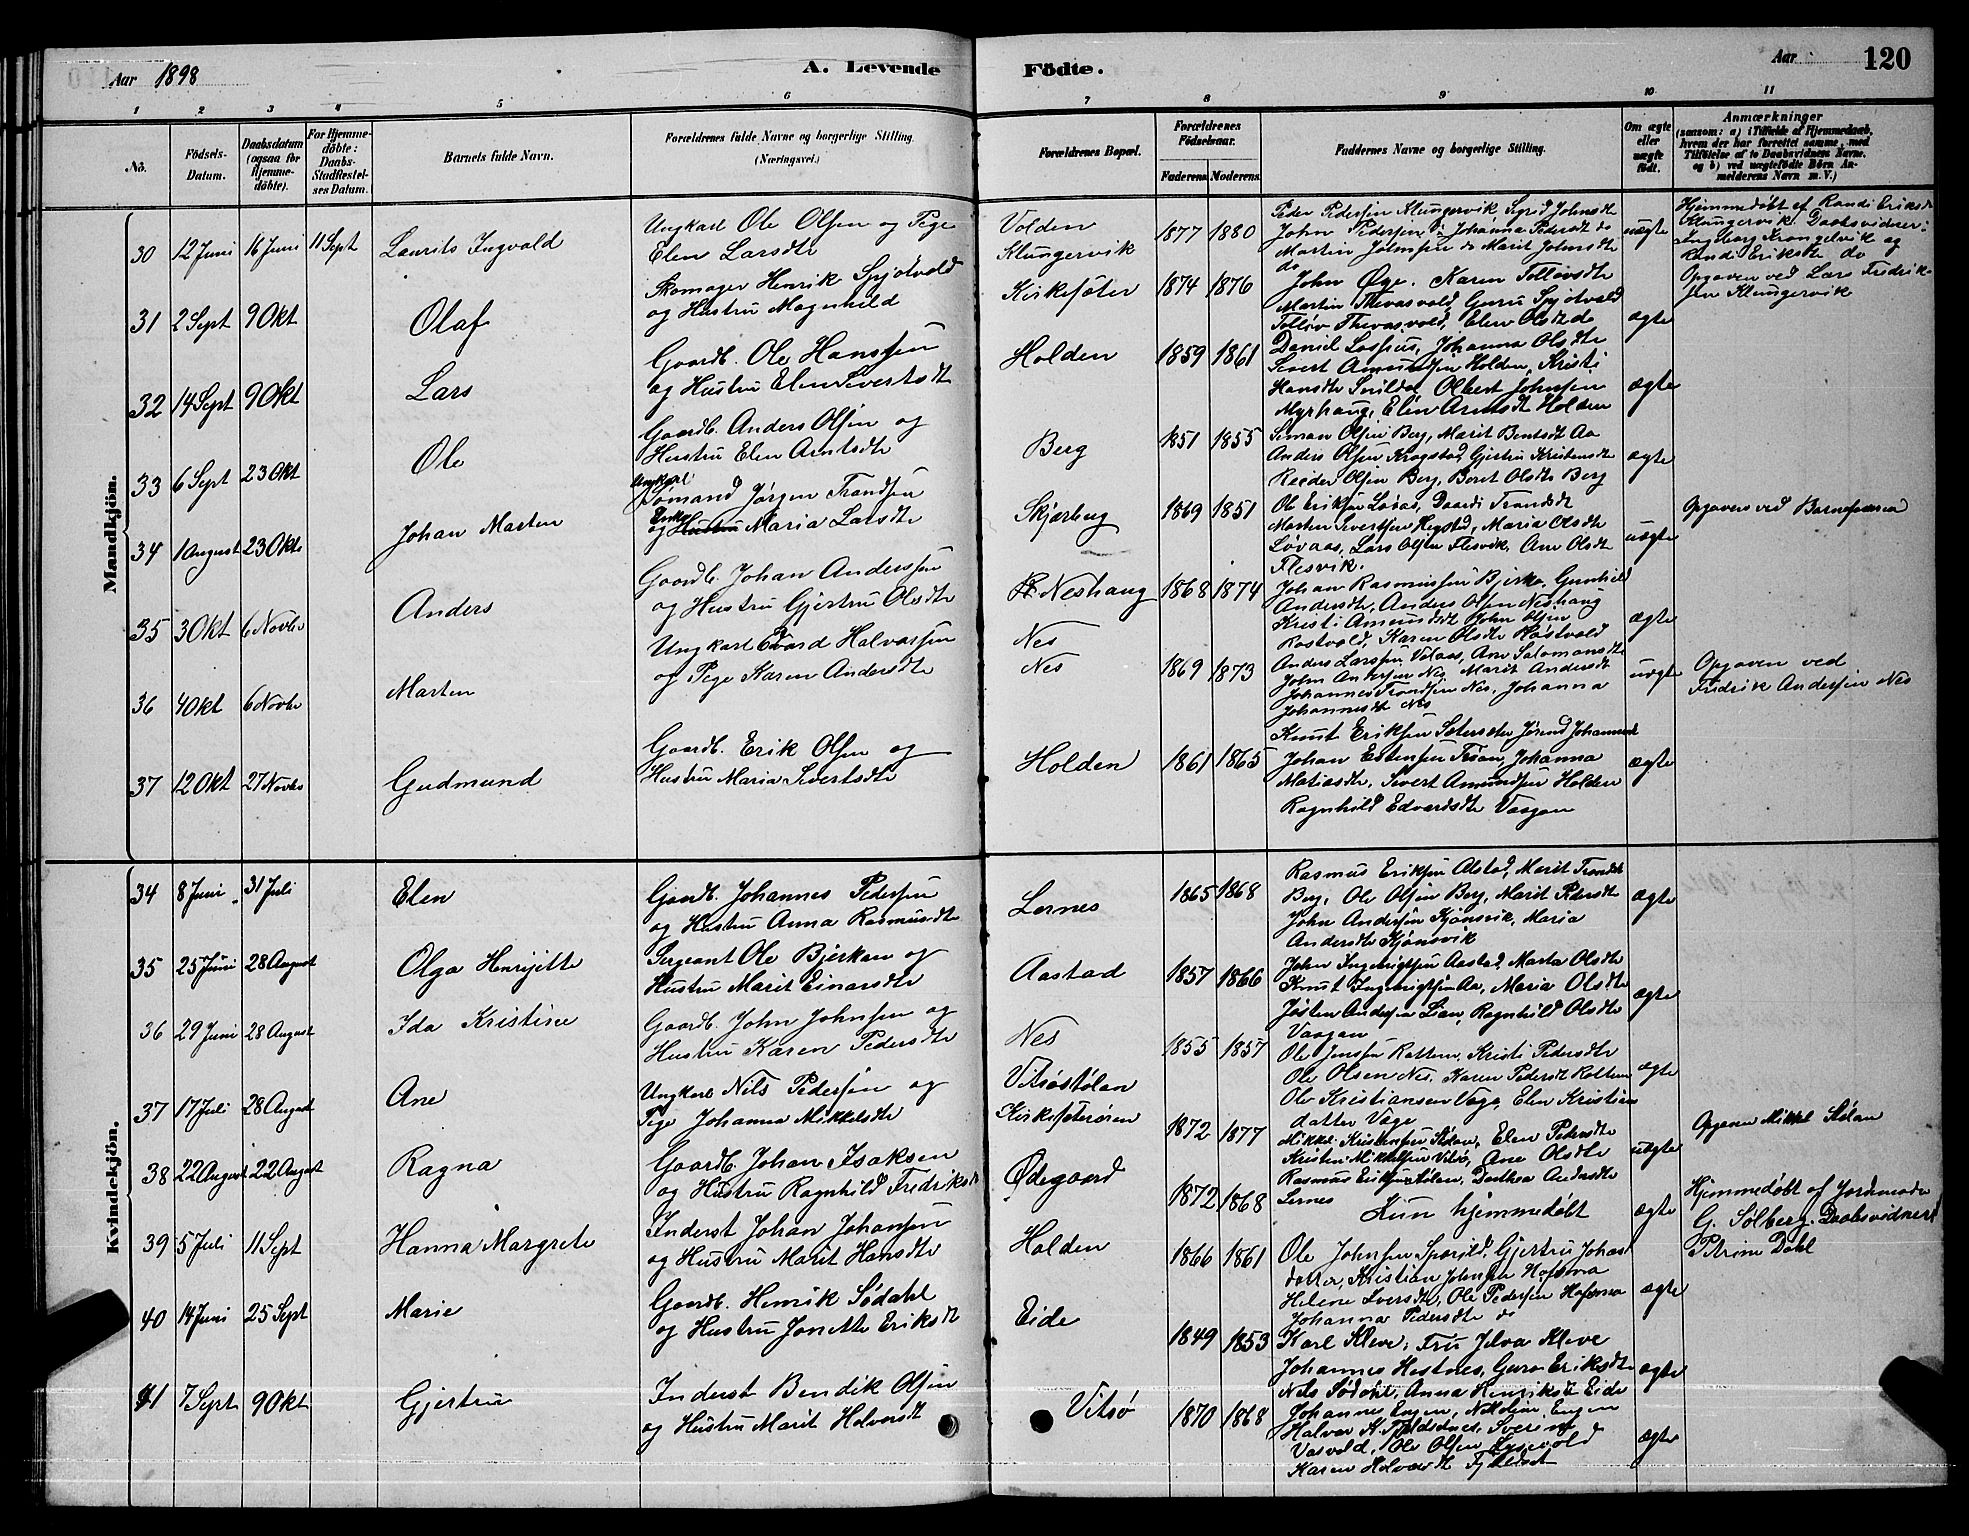 Aar 1898 A. Levende Födte. Aar 120
1 2 3 4 5 6 7 8 9 10 11
No. Födsels-Datum. Daabsdatum (ogsaa for Hjemmedöbte). For Hjemmedöbte: Daabs-Stadfæstelses Datum. Barnets fulde Navn. Forældrenes fulde Navne og borgerlige Stilling. (Næringsvei.) Forældrenes Bopæl. Forældrenes Födselsaar. Faderens Moderens. Faddernes Navne og borgerlige Stilling. Om ægte eller uægte födt. Anmærkninger (saasom: a) i Tilfælde af Hjemmedaab, hvem der har forrettet samme, med Tilföielse af to Daabsvidners Navne, og b) ved uægtefödte Börn Anmelderens Navn m. V.)
Mandkjön.
30 12 Juni 16 Juni 11 Sept Laurits Ingvald
Ungkarl Ole Olsen og Pige
Elen Larsdtr
Volden
Klungervik
1877 1880
Peder Pedersen Klungervik, Sigrid Johnsdtr
John Pedersen do Johanna Pedersdt do
Martin Johnsen do Marit Johnsdtr
do
uægte
Hjemmedöbt af Randi Eriksdt
Klungervik. Daabsvidner:
Ingeborg Krangelvik og
Randi Eriksdtr do
Opgaven ved Lars Fredrik-
sen Klungervik
31 2 Sept 9 Okt Olaf
Skomager Henrik Spjötvold
og Hustru Magnhild
Kirkesæter
1874 1876
John Øye. Karen Tollevsdtr
Martin Thevasvold, Guru Spjötvold
Tollöv Thevasvold, Elen Olsdt do
ægte
32 14 Sept 9 Okt Lars
Gaardb. Ole Hanssen
og Hustru Elen Sivertsdt
Holden
1859 1861
Daniel Johanna Olsdtr
Sivert Amundsen Holden, Kristi
Hansdtr Snildal Olbert Johnsen
Myrhaug, Elen Arntsdt Holden
ægte
33 6 Sept 23 Okt Ole
Gaardb. Anders Olsen og
Hustru Elen Arntsdtr
Berg
1851 1855
Simon Olsen Berg, Marit Bentsdt Aa
Anders Olsen Krogstad, Gjertru Kristensdt
Reider Olsen Berg, Beret Olsdtr Berg
ægte
34 1 August 23 Okt Johan Marten
Ungkarl
Jørgen Trondsen
Enke
og Hustru Maria Larsdtr
Skjærberg
1869 1851
Ole Eriksen Løvas, Trondsdt
Morten Sivertsen Maria Olsdtr
Løvaas, Lars Olsen Flesvik, Ane Olsdtr
Flesvik.
uægte
Opgaven ved Barnefaderen
35 3 Okt 6 Novbr Anders
Gaardb. Johan Anderssen
og Hustru Gjertru Olsdtr
Neshaug
1868 1874
Johan Rasmussen Bjerke, Gunhild
Andersdtr, Anders Olsen Neshaug
Kristi Amundsdt John Olsen
Rostvold, Karen Olsdtr Røstvold
ægte
36 4 Okt 6 Novbr Marten
Ungkarl Edvard Halvorsen
og Pige Karen Andersdtr
Nes
Nes
1869 1873
Anders Larssen Volaas, Ane Salomonsdt
John Andersen Nes, Marit Andersdt
Johannes Trondsen Nes, Johanna
Johannesdt Nes
uægte
Opgaven ved
Fredrik Andersen Nes
37 12 Okt 27 Novbr Gudmund
Gaardb. Erik Olsen og
Hustru Maria Sivertsdtr
Holden
1861 1865
Knut Eriksen Jörind Johannesdt
Johan Estensen Johanna
Matiasdtr, Sivert Amundsen Holden
Ragnhild Edvardsdtr Vaagan
ægte
Kvindekjön.
34 8 Juni 31 Juli Elen
Gaardb. Johannes Pedersen
og Hustru Anna Rasmusdtr
Lernes
1865 1868
Rasmus Eriksen Alstad, Marit Trondsdt
Berg, Ole Olsen Berg, Marit Pedersdtr
John Andersen Kjönsvik, Maria
Andersdtr Kjönsvik
ægte
35 25 Juni 28 August Olga Henrijette
Sergeant Ole Bjerkan og
Hustru Marit Einarsdtr
Aastad
1857 1866
John Ingebrigtsen Aastad, Marta Olsdtr
Knut Ingebrigtsen Aa, Maria Olsdtr
Jösten Andersen Lian, Ragnhild Olsdtr
Vaagan
ægte
36 29 Juni 28 August Ida Kristine
Gaardb. John Johnsen og
Hustru Karen Pedersdtr
Nes
1855 1857
Ole Jenssen Rottem, Kristi Pedersdtr
Ole Olsen Nes, Karen Pedersdt Rottem
Ole Kristiansen Vaage, Elen Kristian
datter Vage
ægte
37 17 Juli 28 August Ane
Ungkarl Nils Pedersen og
Pige Johanna Mikkelsdtr
Vitsöstölan
Kirkesæterören
1872 1877
Mikkel Kristensen Stölan, Elen Pedersdtr
Kristen Mikkelsen Vitsö, Ane Olsdtr
Rasmus Eriksen Stölan, Dorthea Andersdtr
Lernes
uægte
Opgaven Mikkel Stölan
38 22 August 22 August Ragna
Gaardb. Johan Isaksen
og Hustru Ragnhild Fredriksdt
Ødegaard
1872 1868
Kun hjemmedöbt
ægte
Hjemmedöbt af Jordmoder
G. Solberg. Daabsvidner:
Petrine Dahl
39 5 Juli 11 Sept Hanna Margrete
Inderst Johan Johansen
og Hustru Marit Hansdtr
Holden
1866 1861
Ole Johnsen Gjertru Johans
datter, Kristian Johnsen Hofsmo
Helene Iversdtr, Ole Pedersen Hofsmo
Johanna Pedersdtr do
ægte
40 14 Juni 25 Sept Marie
Gaardb. Henrik Södahl
og Hustru Jonette Eriksdt
Eide
1849 1853
Karl Kleve, Fru Jelva Kleve
Johannes Hestnes, Guru Eriksdtr
Nils Södahl, Anna Henriksdt Eide
ægte
41 7 Sept 9 Okt Gjertru
Inderst Bendik Olsen
og Hustru Marit Halvorsdt
Vitsö
1870 1868
Johannes Engen, Nikoline Engen
Halvor K. Fjeldsænes,
Vasvold, Ole Olsen
Karen Halvorsdt
ægte